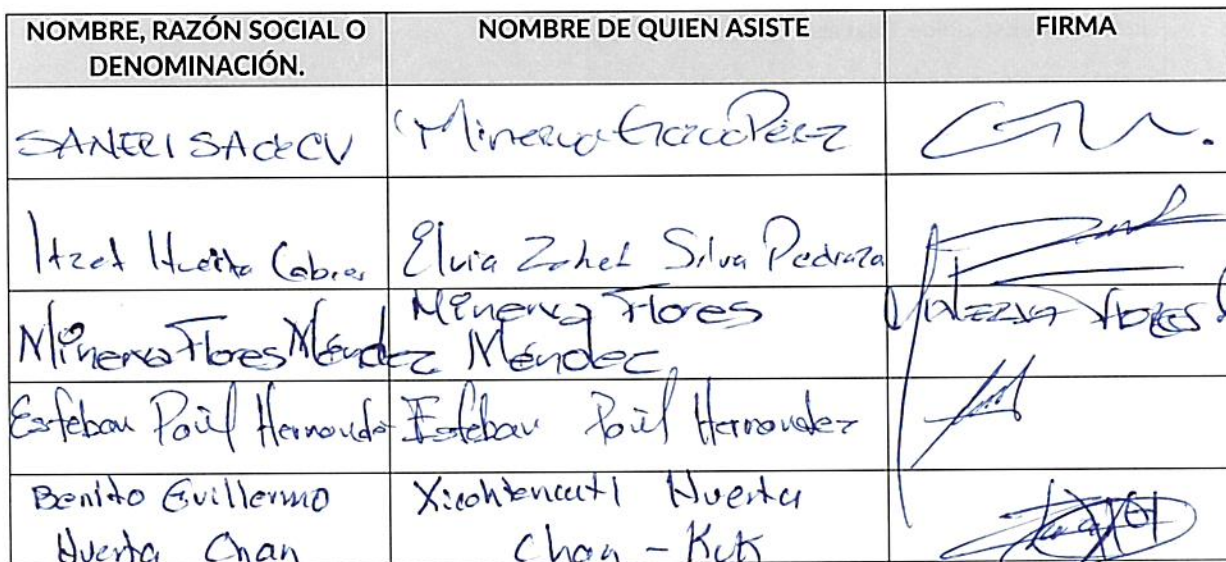 NOMBRE, RAZÓN SOCIAL O
DENOMINACIÓN.
NOMBRE DE QUIEN ASISTE
FIRMA
SANERI SA de CV
Minerva Pérez
Itzet Cabrer
Elvia Zohet Silva Pedraza
Minerva Flores Méndez
Minerva Flores
Méndez
Flores
Esteban Paúl Hernandez
Esteban Paúl Hernandez
Benito Guillermo
Huerta Chan
Xicohtencatl Huerta
Chan - Kuk